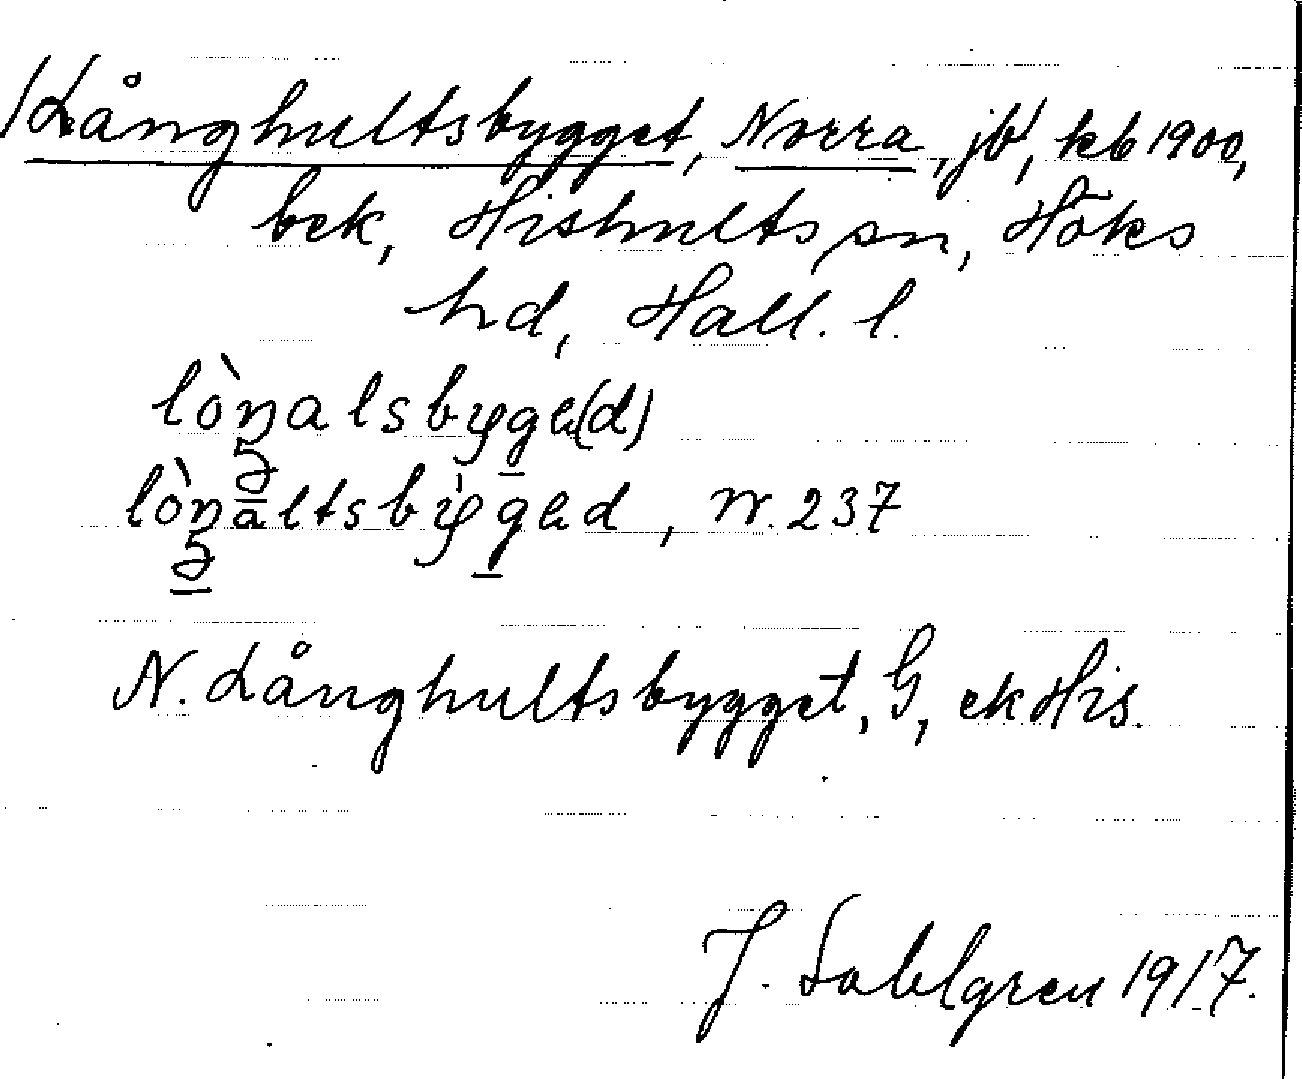 /Långhultsbygget, Norra, jb, kb 1900,
bek, Hishults sn, Höks
hd, Hall. l.
lòŋalsbyge(d)
lòŋaltsbyged, nr. 237
N. Långhultsbygget, G, ek His.
J. Sahlgren 1917.